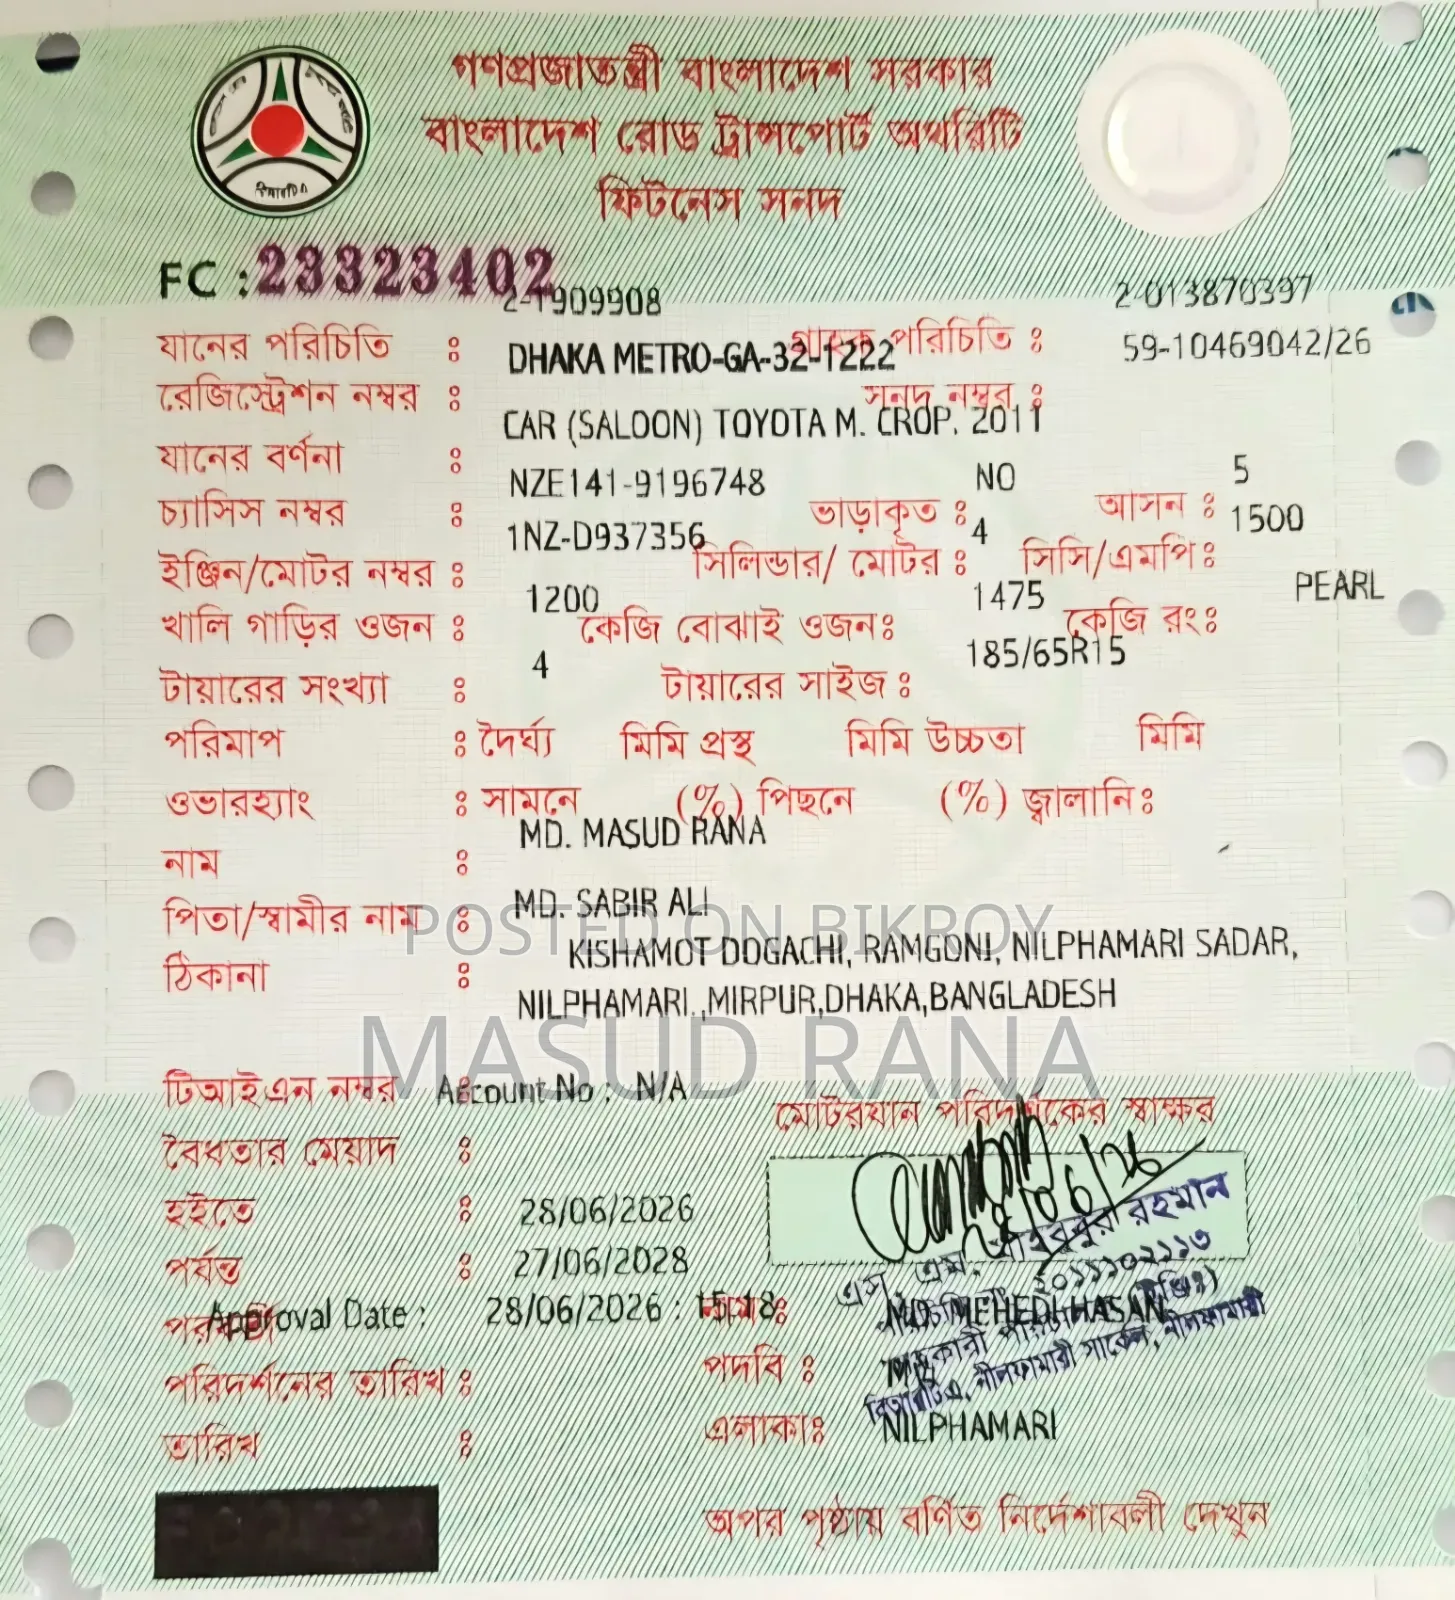 গণপ্রজাতন্ত্রী বাংলাদেশ সরকার
বাংলাদেশ রোড ট্রান্সপোর্ট অথরিটি
ফিটনেস সনদ
বিআরটিএ
FC : 23323402
2-1909908 2-013870397
যানের পরিচিতি : গ্রাহক পরিচিতি : 59-10469042/26
DHAKA METRO-GA-32-1222
রেজিস্ট্রেশন নম্বর : সনদ নম্বর :
CAR (SALOON) TOYOTA M. CROP. 2011
যানের বর্ণনা :
NZE141-9196748 NO 5
চ্যাসিস নম্বর : ভাড়াকৃত : আসন :
1NZ-D937356 4 1500
ইঞ্জিন/মোটর নম্বর : সিলিন্ডার/ মোটর : সিসি/এমপি :
1200 1475 PEARL
খালি গাড়ির ওজন : কেজি বোঝাই ওজন : কেজি রং :
4 185/65R15
টায়ারের সংখ্যা : টায়ারের সাইজ :
পরিমাপ : দৈর্ঘ্য মিমি প্রস্থ মিমি উচ্চতা মিমি
ওভারহ্যাং : সামনে (%) পিছনে (%) জ্বালানি :
MD. MASUD RANA
নাম :
MD. SABIR ALI
পিতা/স্বামীর নাম :
POSTED ON BIKROY
KISHAMOT DOGACHI, RAMGONJ, NILPHAMARI SADAR,
ঠিকানা :
NILPHAMARI.,MIRPUR,DHAKA,BANGLADESH
MASUD RANA
টিআইএন নম্বর : Account No : N/A
মোটরযান পরিদর্শকের স্বাক্ষর
বৈধতার মেয়াদ :
28/06/26
হইতে : 28/06/2026
এস. এম. রহমান
পর্যন্ত : 27/06/2028
২০১১১০২১১৩
Approval Date : 28/06/2026 : 15:18 নাম : MD. MEHEDI HASAN
পরবর্তী
পরিদর্শনের তারিখ : পদবি :
সহকারী
বিআরটিএ, নীলফামারী সার্কেল, নীলফামারী
তারিখ : এলাকা : NILPHAMARI
অপর পৃষ্ঠায় বর্ণিত নির্দেশাবলী দেখুন